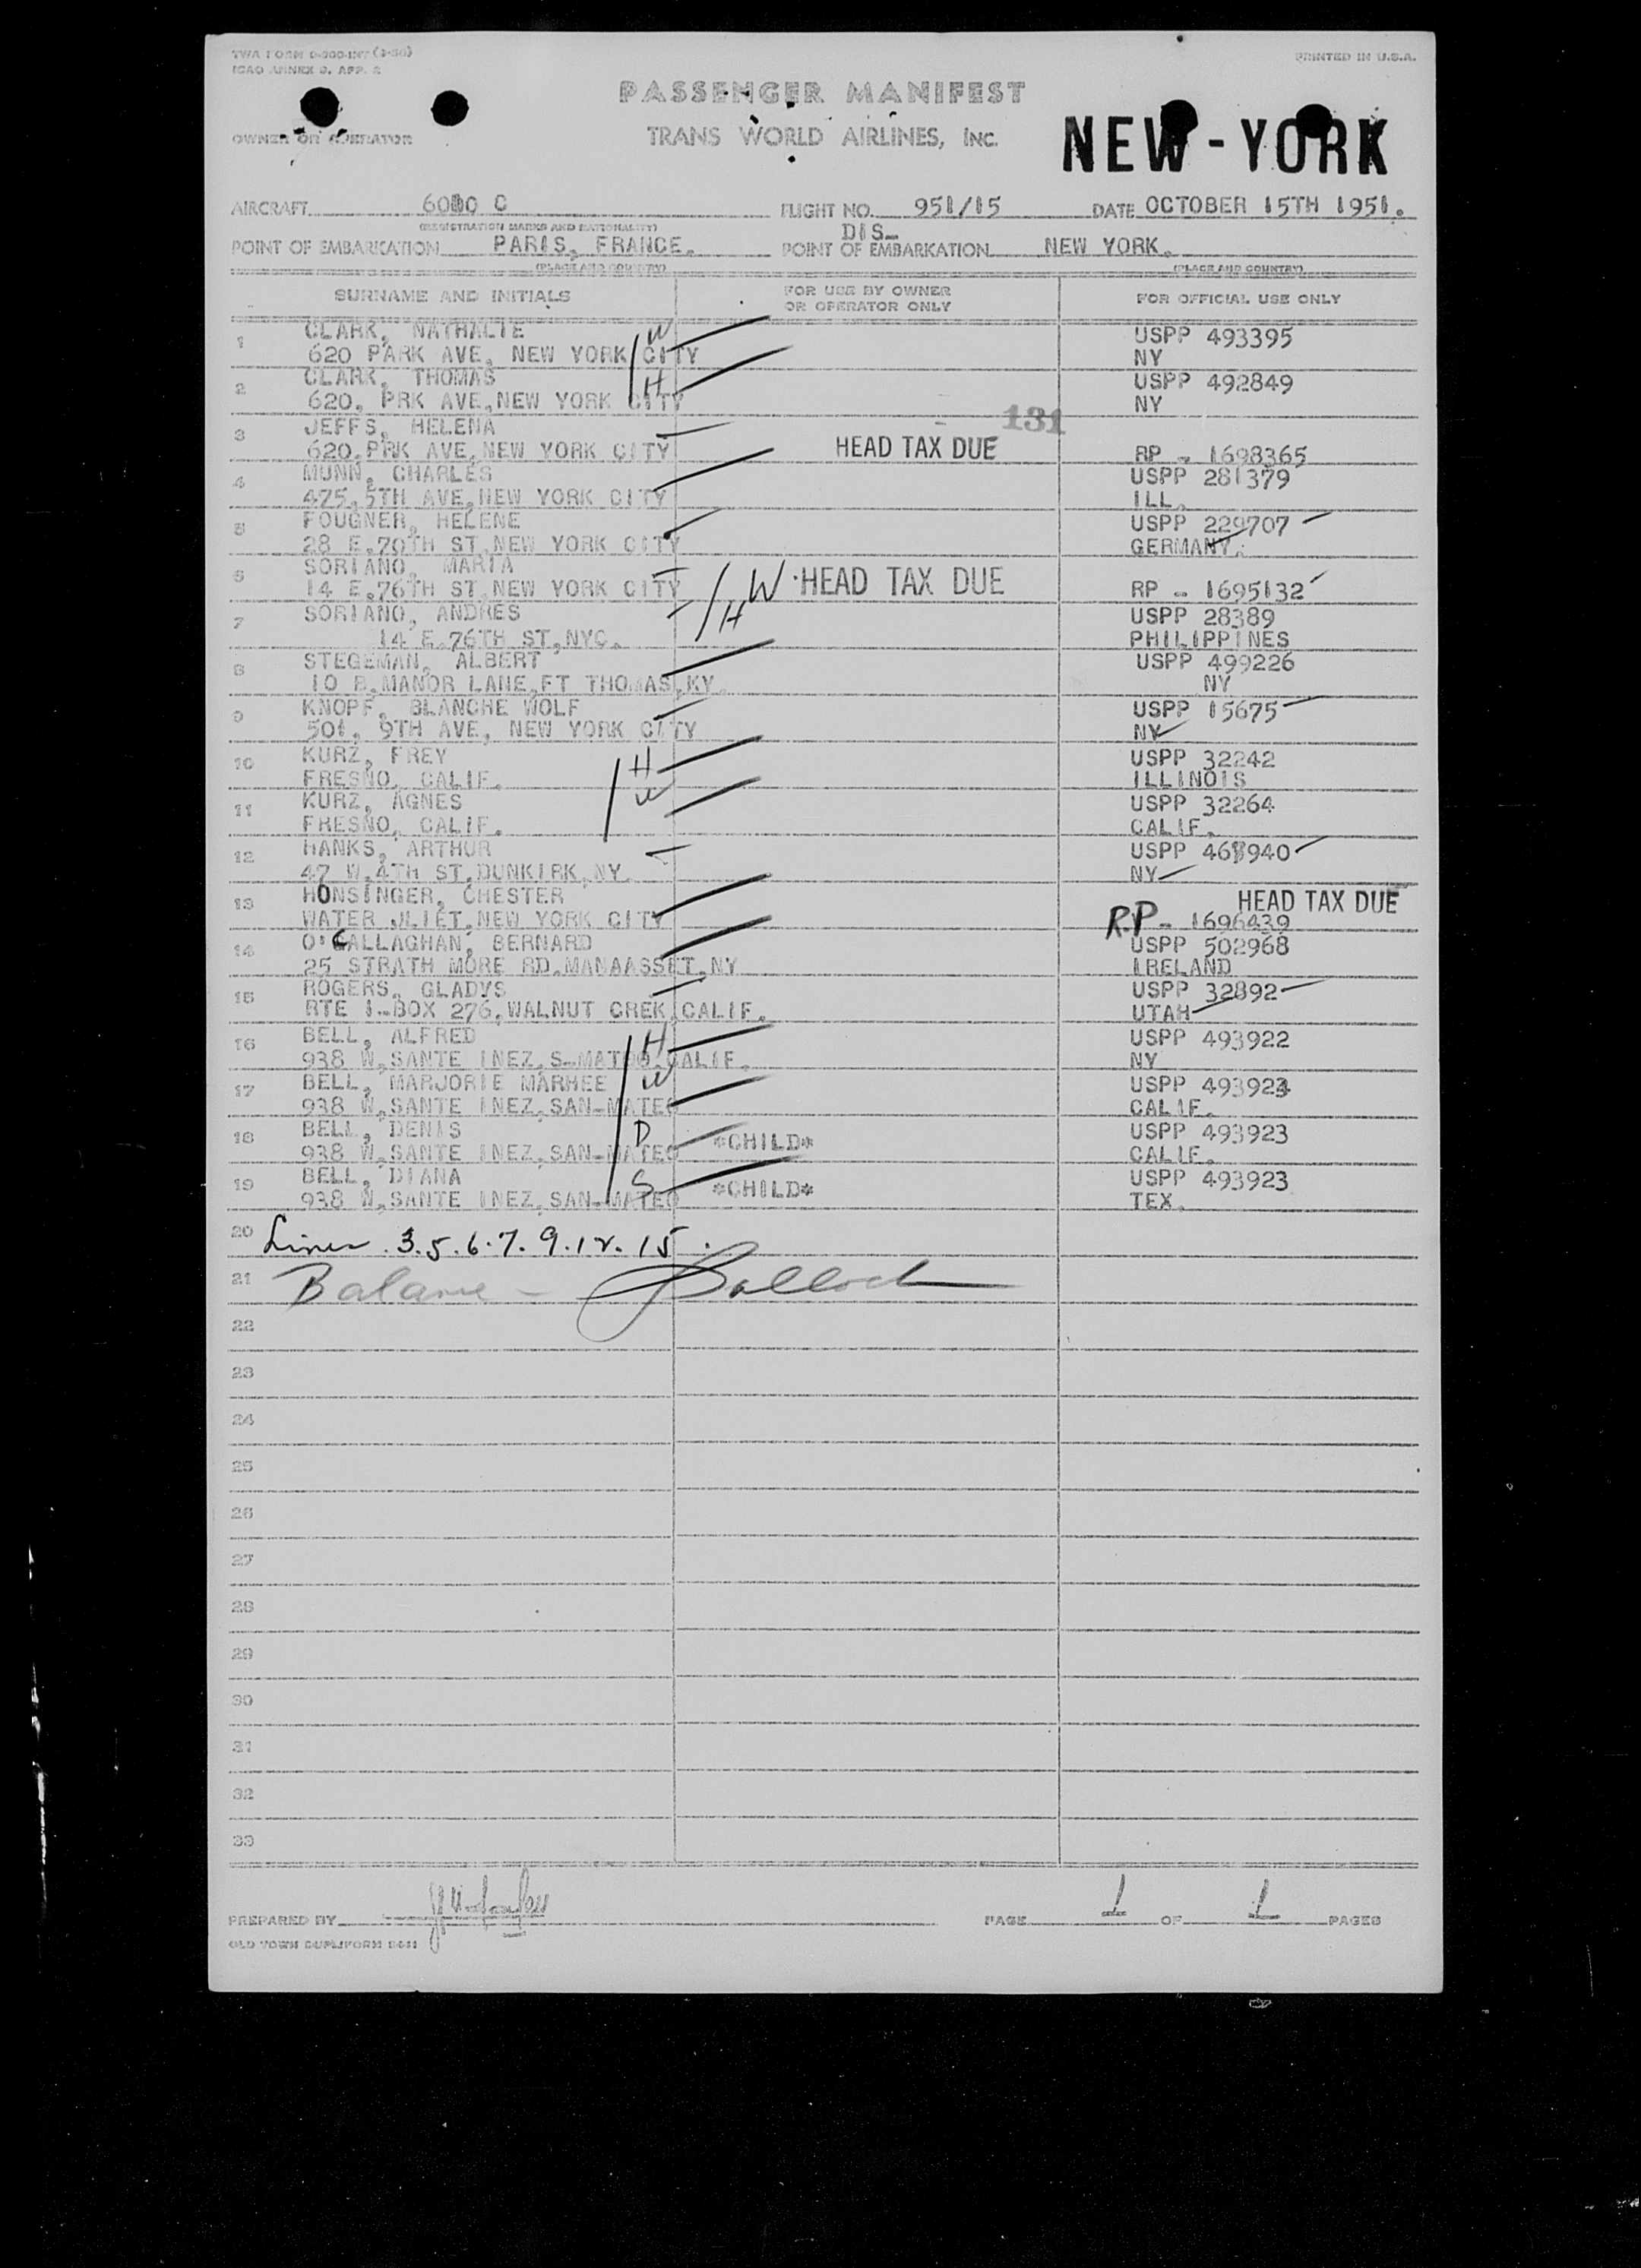 TWA FORM D-300-INT (1-50)
ICAO ANNEX 9, APP. 2
PRINTED IN U.S.A.
PASSENGER MANIFEST
OWNER OR OPERATOR
TRANS WORLD AIRLINES, INC.
NEW-YORK
AIRCRAFT C FLIGHT NO. 951/15 DATE OCTOBER 15TH 1951.
(REGISTRATION MARKS AND NATIONALITY)
DIS-
POINT OF EMBARKATION PARIS, FRANCE. POINT OF EMBARKATION NEW YORK.
(PLACE AND COUNTRY) (PLACE AND COUNTRY)
SURNAME AND INITIALS FOR USE BY OWNER OR OPERATOR ONLY FOR OFFICIAL USE ONLY
1 CLARK, NATHALIE W USPP 493395
620 PARK AVE, NEW YORK CITY NY
2 CLARK, THOMAS H USPP 492849
620, PRK AVE,NEW YORK CITY NY
131
3 JEFFS, HELENA
620,PRK AVE,NEW YORK CITY HEAD TAX DUE RP - 1698365
4 MUNN, CHARLES USPP 281379
475,5TH AVE,NEW YORK CITY ILL.
5 FOUGNER, HELENE USPP 229707
28 E.70TH ST,NEW YORK CITY GERMANY.
6 SORIANO, MARIA
14 E.76TH ST,NEW YORK CITY W HEAD TAX DUE RP - 1695132
7 SORIANO, ANDRES H USPP 28389
14 E.76TH ST,NYC. PHILIPPINES
8 STEGEMAN, ALBERT USPP 499226
10 B.MANOR LANE,FT THOMAS,KY. NY
9 KNOPF, BLANCHE WOLF USPP 15675
501, 9TH AVE, NEW YORK CITY NY
10 KURZ, FREY H USPP 32242
FRESNO, CALIF. ILLINOIS
11 KURZ, AGNES W USPP 32264
FRESNO, CALIF. CALIF.
12 HANKS, ARTHUR USPP 468940
47 W.4TH ST,DUNKIRK,NY. NY
13 HONSINGER, CHESTER HEAD TAX DUE
WATER JLIET,NEW YORK CITY R.P - 1696439
14 O'CALLAGHAN, BERNARD USPP 502968
25 STRATH MORE RD,MANAASSET,NY IRELAND
15 ROGERS, GLADYS USPP 32892
RTE 1-BOX 276,WALNUT CREK,CALIF. UTAH
16 BELL, ALFRED H USPP 493922
938 W,SANTE INEZ,S-MATEO,CALIF. NY
17 BELL, MARJORIE MARHEE W USPP 493923
938 W,SANTE INEZ,SAN-MATEO CALIF.
18 BELL, DENIS D *CHILD* USPP 493923
938 W,SANTE INEZ,SAN-MATEO CALIF.
19 BELL, DIANA S *CHILD* USPP 493923
938 W,SANTE INEZ,SAN-MATEO TEX.
20 Lines 3.5.6.7.9.12.15.
21 Balance -
22
23
24
25
26
27
28
29
30
31
32
33
PREPARED BY PAGE 1 OF 1 PAGES
OLD TOWN DUPLIFORM